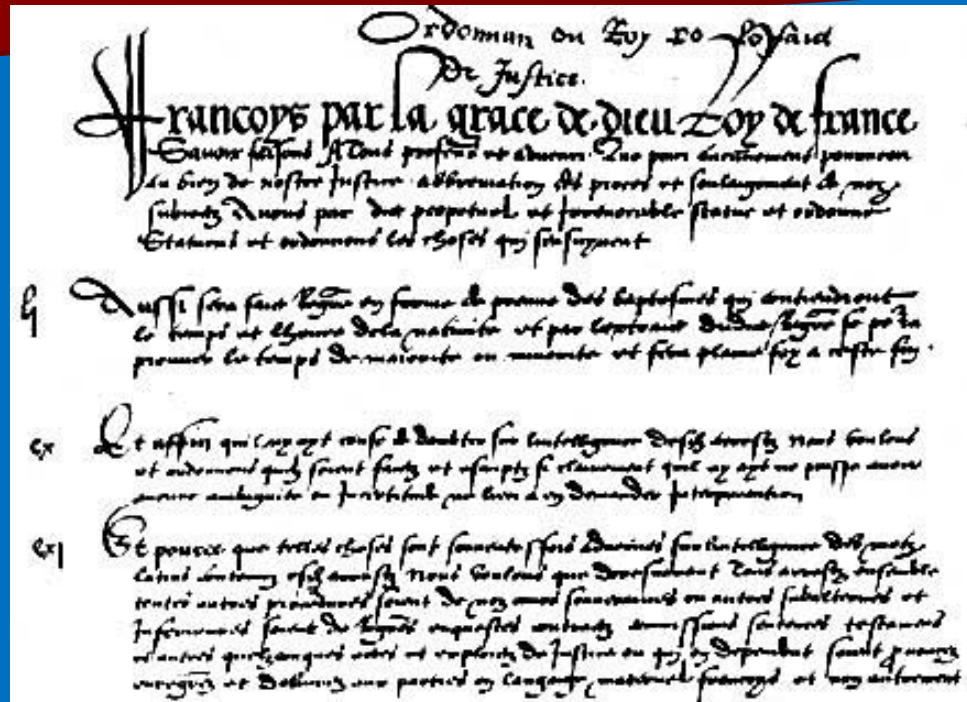 Ordonnan du Roy le faict
de Justice.
Francoys par la grace de dieu Roy de france
Savoir faisons A Tous presens et advenir Que pour aucunement pourveoir
au bien de nostre Justice abbreviation des proces et soulaigement de noz
subiectz Avons par edict perpetuel et Irrevocable statue et ordonne
Statuons et ordonnons les choses qui sensuyvent
lj Aussi sera faict Regre en forme de preuve des baptesmes qui contiendront
le temps et lheure de la nativite et par lextraict dudict Regre se porra
prouver le temps de maiorite ou minorite et fera plaine foy a ceste fin.
cx Et affin quil ny ayt cause de doubter sur lintelligence desdz arrestz Nous voulons
et ordonnons quilz soient faictz et escriptz si clairement quil ny ayt ne puisse avoir
aucune ambiguite ou Incertitude ne lieu a en demander Interpretation
cxj Et pource que telles choses sont souventesffois advenues sur lintelligence des motz
latins contenuz esdz arrestz Nous voulons que doresnavant Tous arrestz ensemble
toutes autres procedures soient de noz cours souveraines ou autres subalternes et
Inferieures soient de Regres enquestes contractz commissions sentences testamens
et autres quelzconques actes et exploictz de Justice ou qui en dependent soient prononcez
enregrez et delivrez aux parties en langage maternel francoys et non autrement